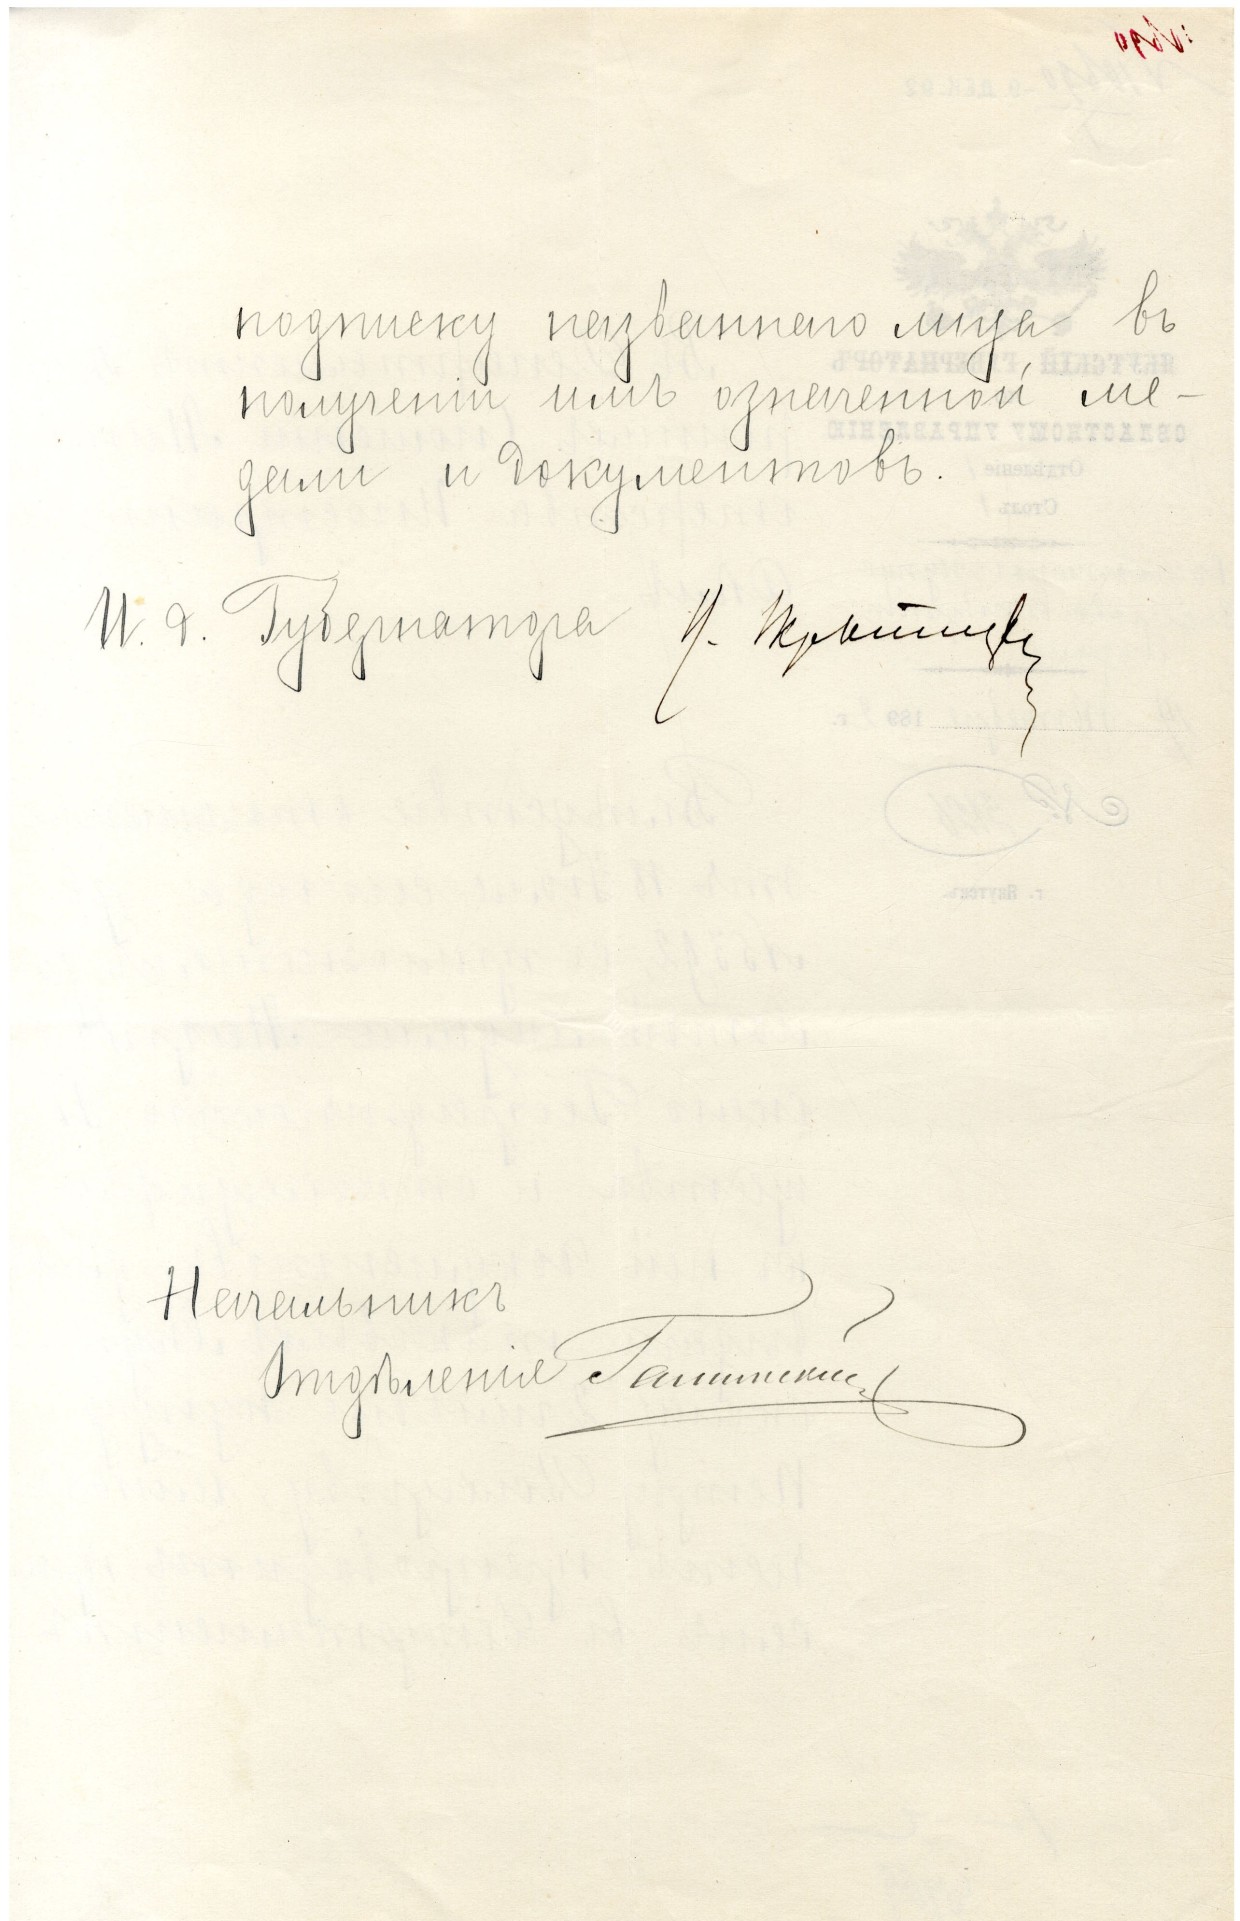 подписку названнаго лица въ
полученіи имъ означенной ме-
дали и документовъ.
И. д. Губернатора
Начальникъ
Отдѣленія